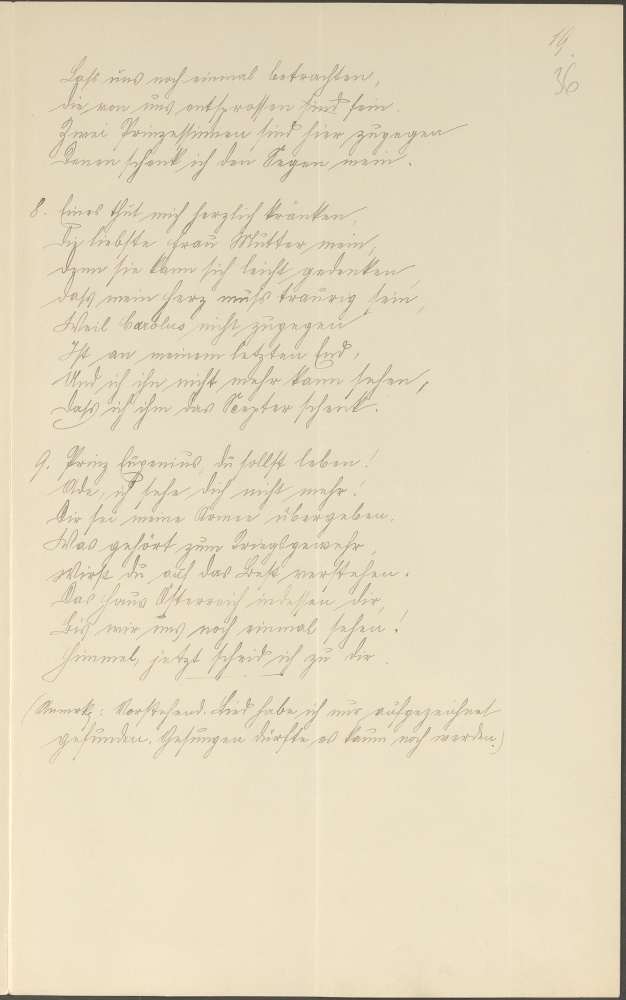 19.
36
Laßt uns noch einmal betrachten,
die von uns entsprossen sind fein.
Zwei Prinzessinnen sind hier zugegen
Denen schenk ich den Segen mein.
8. Eines thut mich herzlich kränken,
Die liebste Frau Mutter mein,
denn sie kann sich leicht gedenken,
daß mein Herz muß traurig sein,
Weil Carolus nicht zugegen
Ist an meinem letzten End,
Und ich ihn nicht mehr kann sehen,
Daß ich ihm das Scepter schenk.
9. Prinz Eugenius, du sollst leben!
Ade, ich sehe dich nicht mehr!
Dir sei meine Armee übergeben.
Was gehört zum Kriegsgewehr,
Wirst du auf das Best verstehen.
Das Haus Österreich indessen dir,
Bis wir uns noch einmal sehen!
Himmel, jetzt scheid ich zu dir.
(Anmerkg: Vorstehend. Lied habe ich nur aufgezeichnet
gefunden. Gesungen dürfte es kaum noch werden.)